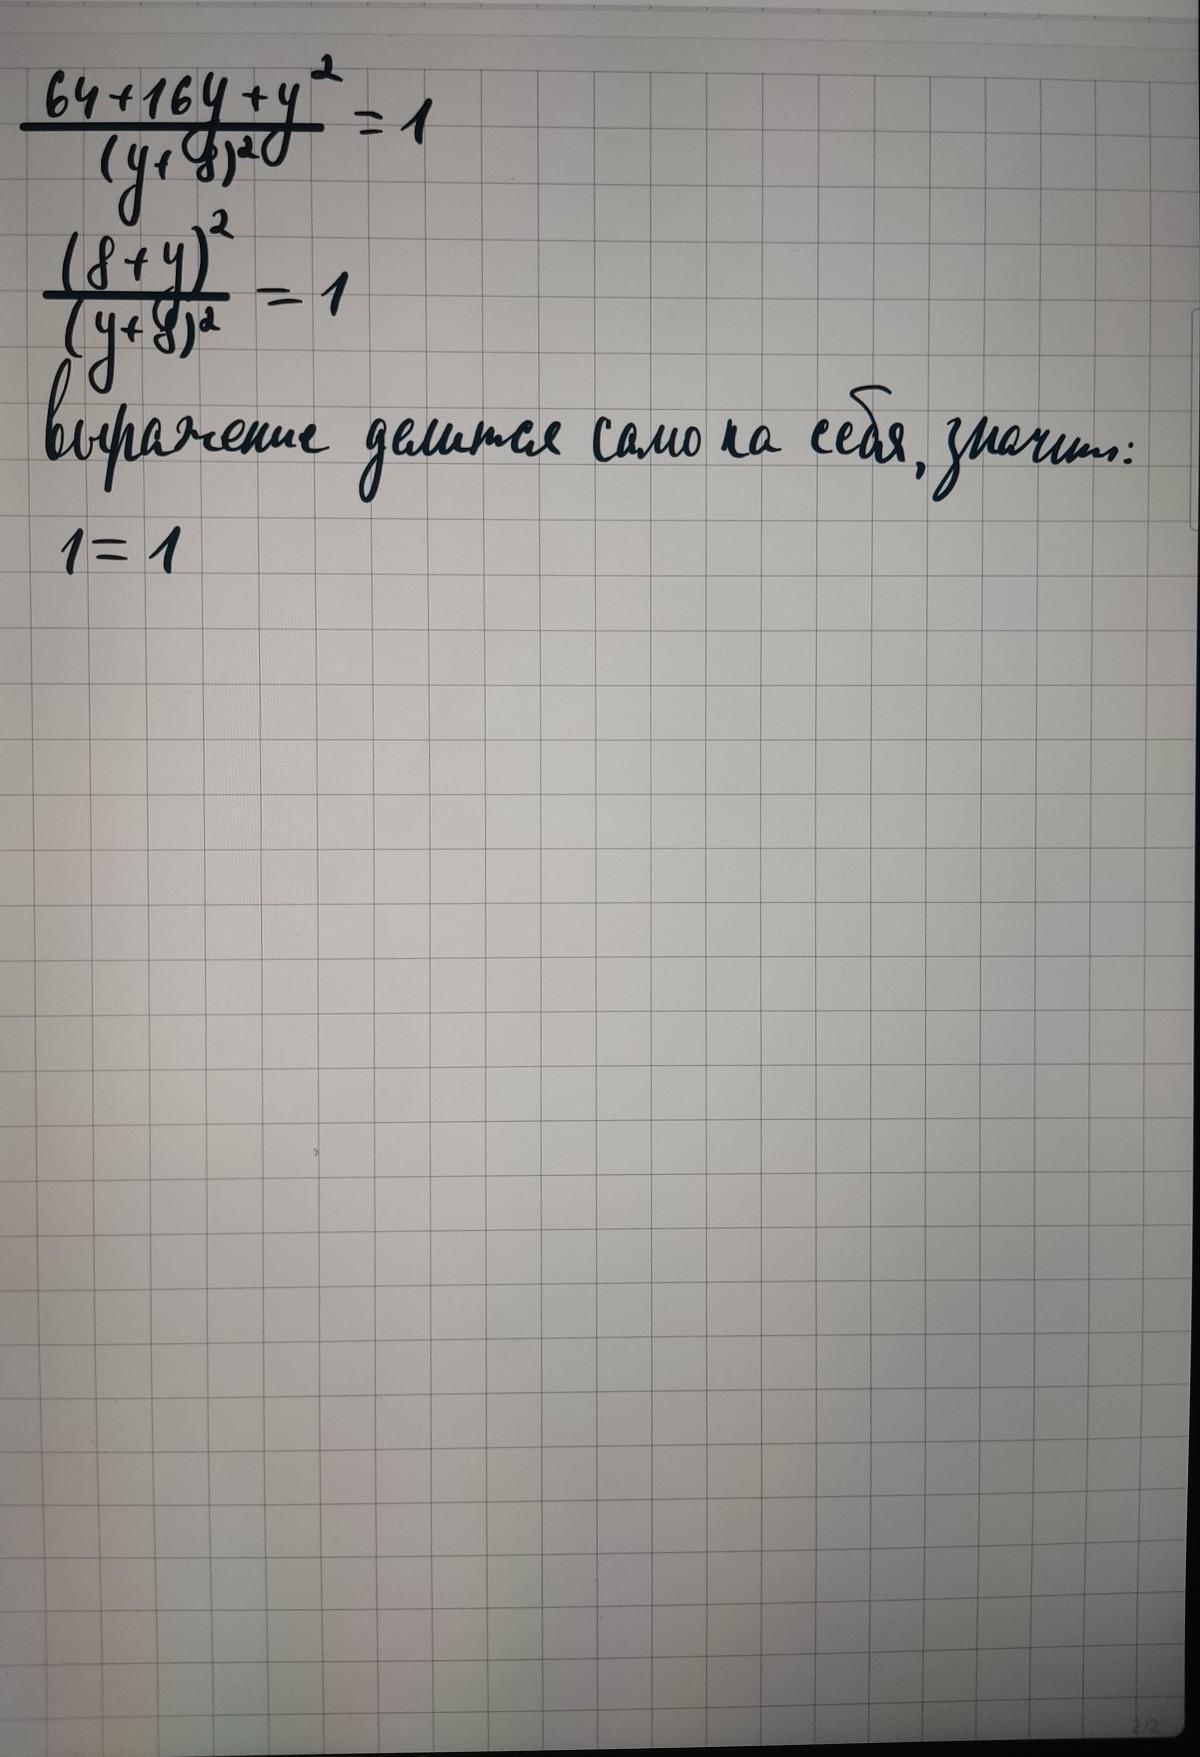 64+16y+y²
(y+8)²
=1
(8+y)²
(y+8)²
=1
выражение делится само на себя, значит:
1=1
2/2